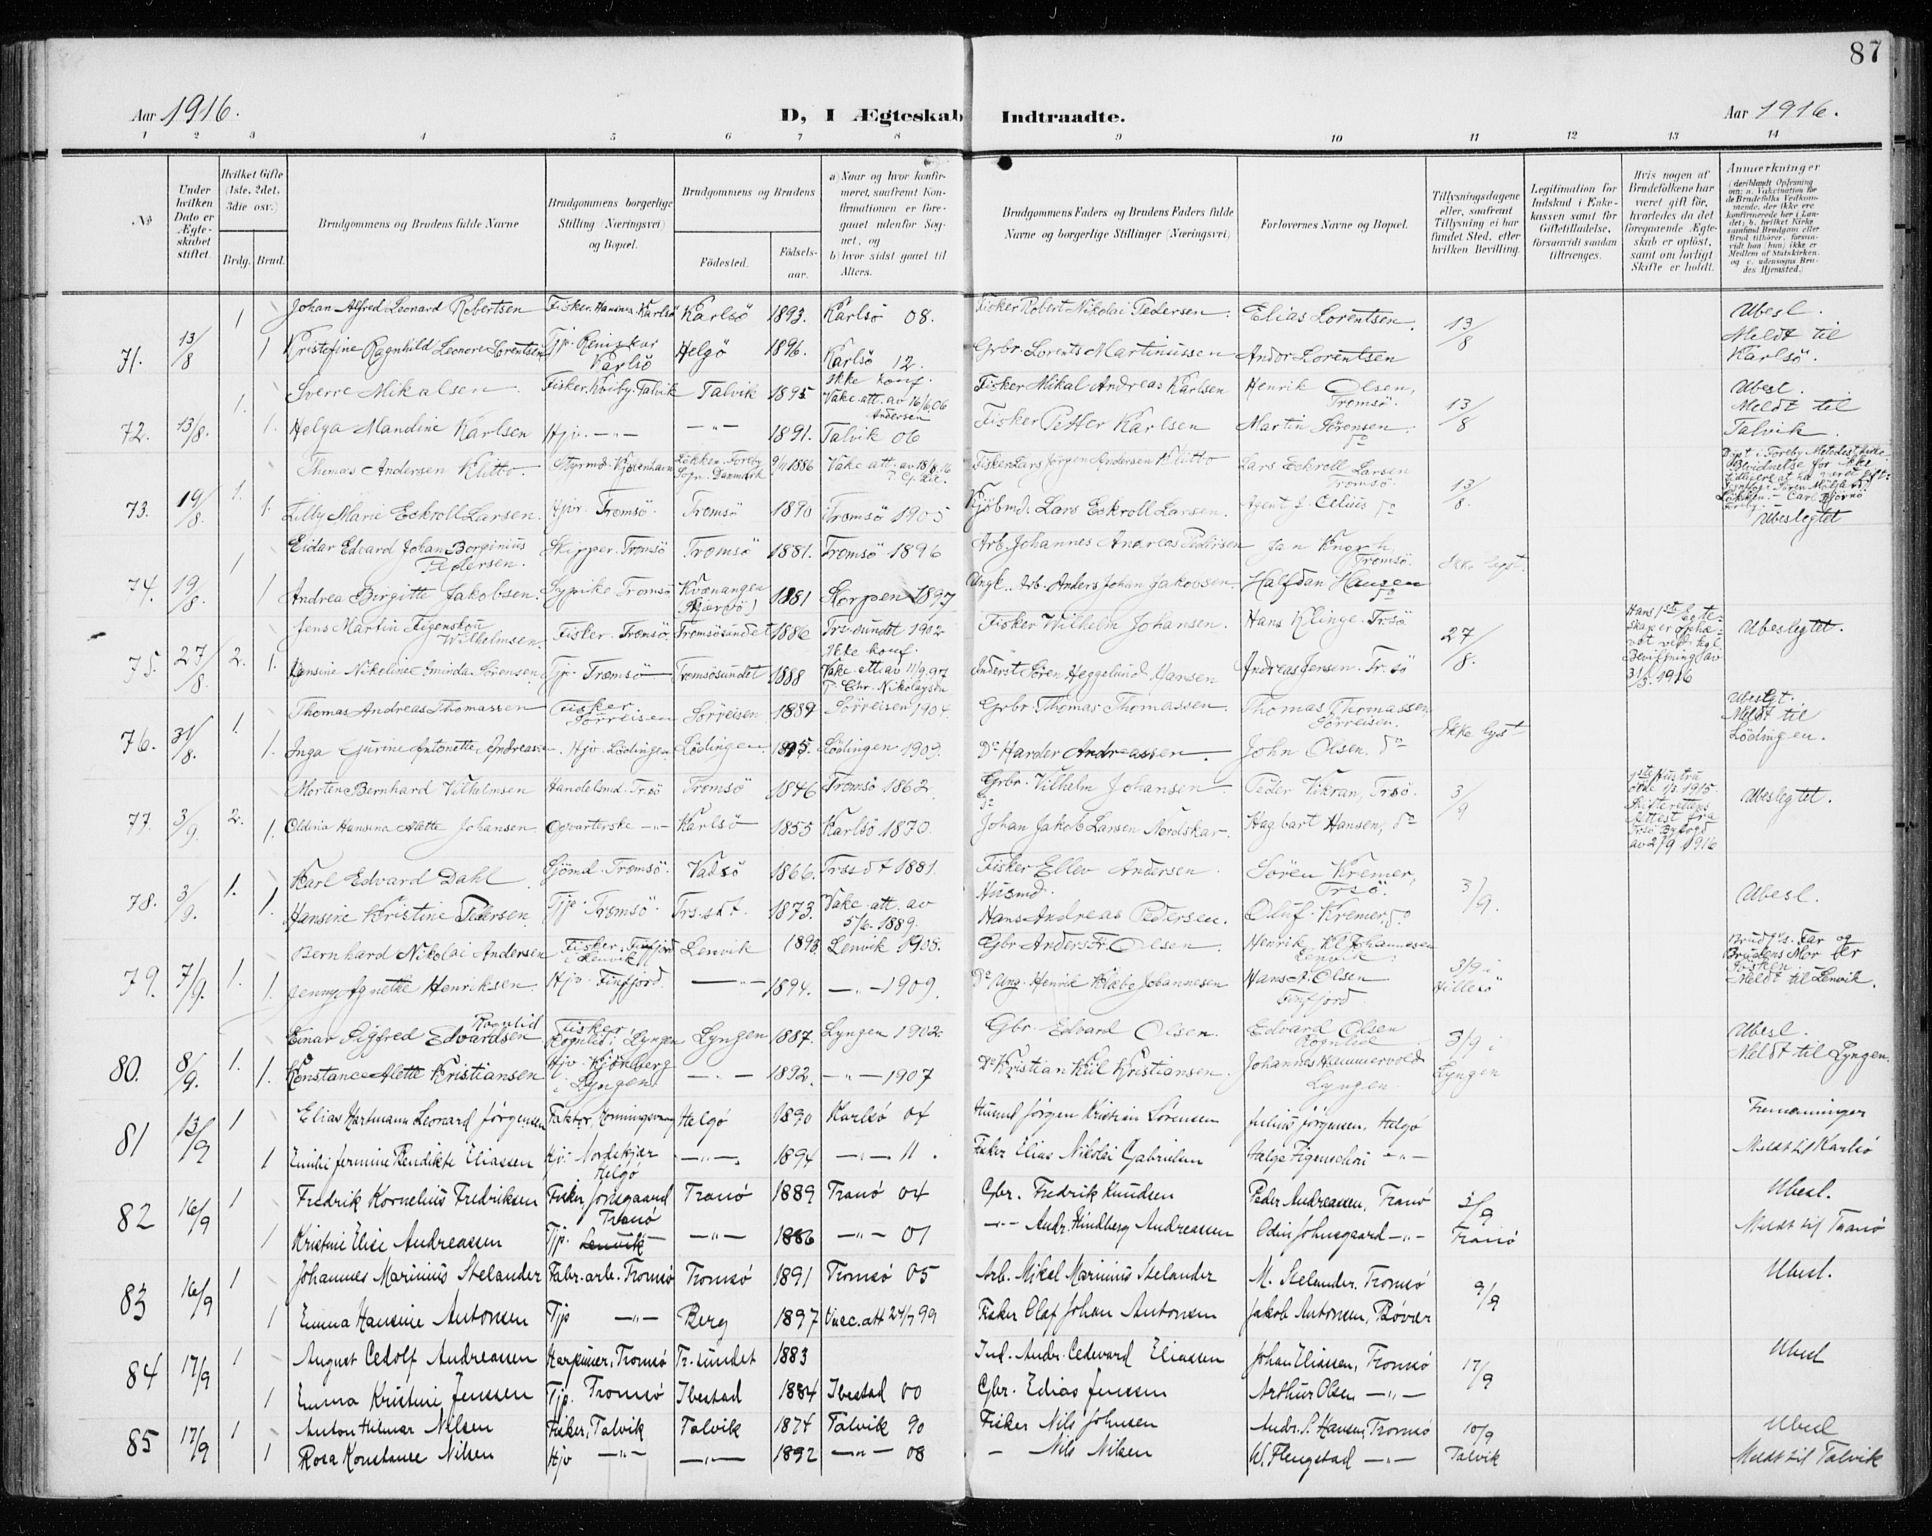 87
Aar 1916.
D, I Ægteskab Indtraadte.
Aar 1916.
1 2 3 4 5 6 7 8 9 10 11 12 13 14
No
Under hvilken Dato er Ægteskabet stiftet.
Hvilket Gifte (1ste, 2det, 3die osv.)
Brdg. Brud.
Brudgommens og Brudens fulde Navne
Brudgommens borgerlige Stilling (Næringsvei) og Bopæl.
Brudgommens og Brudens
Fødested.
Fødselsaar.
a) Naar og hvor konfirmeret, saafremt Konfirmationen er foregaaet udenfor Sognet, og
b) hvor sidst gaaet til Alters.
Brudgommens Faders og Brudens Faders fulde Navne og borgerlige Stillinger (Næringsvei)
Forlovernes Navne og Bopæl.
Tillysningsdagene eller, saafremt Tillysning ei har fundet Sted, efter hvilken Bevilling.
Legitimation for Indskud i Enkekassen samt for Giftetilladelse, forsaavidt saadan tiltrænges.
Hvis nogen af Brudefolkene har været gift før, hvorledes da det foregaaende Ægteskab er opløst, samt om lovligt Skifte er holdt.
Anmerkninger
71. 13/8 1 Johan Alfred Leonard Robertsen Fisker. Hansnes. Karlsö Karlsö 1893. Karlsö 08. Fisker Robert Nikolai Pedersen. Elias Lorentsen. 13/8 Ubesl.
1 Kristofine Ragnhild Leonore Lorentsen Tjp. Karlsö Helgö 1896. Karlsö 12. Grbr. Lorents Martinussen Andor Lorentsen Meldt til Karlsö.
72. 13/8. 1. Sverre Mikalsen Fisker. Talvik Talvik 1895 Ikke konf. Vakc. att. av 16/6 06 Andersen Fisker Mikal Andreas Karlsen Henrik Olsen, Tromsö. 13/8 Ubesl.
1. Helga Mandine Karlsen Hjv. —"— —"— 1891. Talvik 06 Fisker Petter Karlsen Martin Sörensen do Meldt til Talvik.
73. 19/8. 1. Thomas Andersen Klitto. Styrmd. Kjöbenhavn Danmark 9/11 1886 Vakc. att. av 18/8 Fisker Lars Jörgen Andersen Klitto Lars Eckroll Larsen Tromsö. 13/8.
1. Lilly Marie Eckroll Larsen. Hjv. Tromsö. Tromsö 1890 Tromsö 1905 Kjöbmd. Lars Eckroll Larsen. Agent J. Celius do Ubeslegtet
74. 19/8. 1 Eidar Edvard Johan Borginius Pedersen. Skipper. Tromsö Tromsö 1881. Tromsö 1896 Arb. Johannes Andreas Pedersen Jan Knoph, Tromsö. Ikke lyst.
1 Andrea Birgitte Jakobsen. Sypike Tromsö Kvænangen 1881 Skorpen 1897 Arb. Anders Johan Jakobsen. Halfdan Hansen do
75. 27/8. 2. Jens Martin Figenskou Wilhelmsen. Fisker. Tromsö. Tromsösundet 1886 Trs.sundet 1902 Fisker Wilhelm Johansen. Hans Klinge. Trsö 27/8. Ubeslegtet.
1. Hansine Nikeline Sörensen Tjp. Tromsö Tromsösundet 1888 Ikke konf. Vakc. att. av 11/9 97 Chr. Nikolaysen Inderst Sören Heggelund Hansen Andreas Jensen. Tr.sö 31/8. 1916
76. 31/8. 1. Thomas Andreas Thomassen Fisker. Sörreisen Sörreisen 1889 Sörreisen 1904. Grbr. Thomas Thomassen. Thomas Thomassen Sörreisen. Ikke lyst Ubeslgt.
1. Inga Gurine Antonette Andreasen Hjv. Lödingen Lödingen. 1895. Lödingen 1909. Do Harder Andreassen. John Olsen. do Meldt til Lödingen.
77. 3/9. 2. Morten Bernhard Vilhelmsen Handelsmd. Tr.sö Tromsö 1846 Tromsö 1862. Grbr. Vilhelm Johansen. Peder Vikran, Trsö. 3/9 Ubeslegtet.
1. Oldina Hansina Alette Johansen. Opvarterske —"— Karlsö 1855 Karlsö 1870. Johan Jakob Larsen Nordskar. Hagbart Hansen, do av 2/9 1916
78. 3/9. 1. Karl Edvard Dahl Sjömd. Tromsö. Vadsö 1866. Trssdt 1881. Fisker Ellev Andersen. Sören Kremer, Trsö. 3/9. Ubesl.
1. Hansine Kristine Pedersen. Tjp. Tromsö. Trs.sdt. 1873. Vakc. att. av 5/6. 1889. Husmd. Hans Andreas Pedersen. Oluf Kremer, do
79. 7/9. 1. Bernhard Nikolai Andersen Fisker. Finfjord i Lenvik Lenvik 1893. Lenvik 1908. Gbr Anders Fr. Olsen. Henrik Kl. Johannesen Lenvik. 3/9 i Hillesö Brudg.s. Far og Brudens Mor er Søsken.
1. Jenny Agnethe Henriksen. Hjv. Finfjord. —"— 1894. —"— 1909. Do Ung. Henrik Klæbo Johannesen Hans A. Olsen Finfjord Meldt til Lenvik.
80. 8/9. 1. Einar Sigfred Edvardsen Rognlid Fisker Rognlid i Lyngen Lyngen 1887. Lyngen 1902. Gbr. Edvard Olsen. Edvard Olsen Rognlid 3/9 i Lyngen Ubesl.
1. Konstance Alette Kristiansen Hjv. i Lyngen —"— 1892. —"— 1907 Do Kristian Kiil Kristiansen. Johannes Hammervold Lyngen. Meldt til Lyngen.
81 13/9 1 Elias Hartmann Leonard Jørgensen Faktor, Helgø 1890 Karlsø 04 Husmd Jørgen Kristian Sørensen Julius Jørgensen, Helgø Tremenninger
1 Emilie Jermine Bendikte Eliassen Hjv. Nordskjær Helgø —"—. 1894 —"— 11. Fisker Elias Nikolai Gabrielsen Helge Figenschou —"— Meldt til Karlsø
82 16/9 1 Fredrik Kornelius Fredriksen Fisker, Jonsgaard Tranø Tranø 1889 Tranø 04 Gbr. Fredrik Knudsen Peder Andreassen, Tranø 3/9 Tranø Ubesl.
1 Kristine Elise Andreassen Tjp. Lenvik —"— 1886 —"— 01 —"— Andr. Lindberg Andreassen Odin Johnsgaard —"— Meldt til Tranø
83 16/9 1 Johannes Marinius Stelander Fabr.arb. Tromsø Tromsø 1891 Tromsø 05 Arb. Mikal Marinius Stelander M. Stelander. Tromsø 9/9 Ubesl.
1 Emma Hansine Antonsen Tjp —"— Berg 1897 Vacc. att 24/7 99 Fisker Olaf Johan Antonsen Jakob Antonsen,
84 17/9 1 August Cedolf Andreassen Tromsø Tr.sundet 1883 Ind. Andr. Cedevard Eliassen Johan Eliassen, Tromsø 17/9 Ubesl
1 Emma Kristine Jenssen Tjp. Tromsø Ibestad 1884 Ibestad 00 Gbr. Edias Jenssen Arthur Olsen —"—
85 17/9 1 Anton Hilmar Nilsen Fisker, Talvik Talvik 1874 Talvik 90 Fisker Nils Johnsen Andr. S. Hansen, Tromsø 10/9 Talvik Ubesl
1 Rosa Konstanse Nilsen Hjv —"— —"— 1892 —"— 08 — Nils Nilsen W. Flengstad —"— Meldt til Talvik